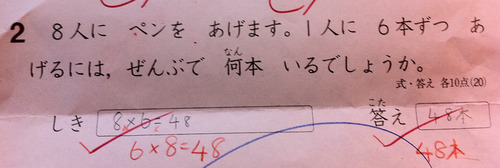 2 8人に ペンを あげます。1人に 6本ずつ あ
げるには、ぜんぶで 何本 いるでしょうか。
なん
式・答え 各10点(20)
しき 8×6=48 答え 48本
こた
6×8=48 48本